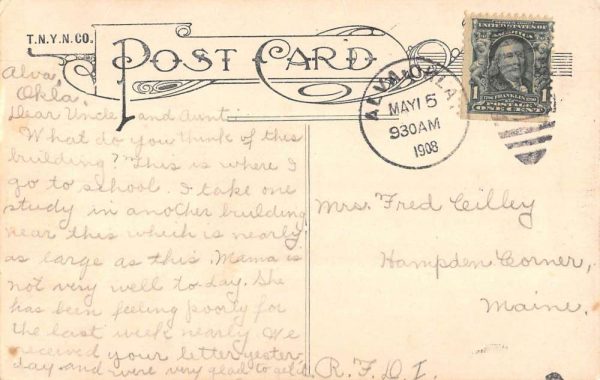 T.N.Y.N.CO.
POST CARD
ALVA, OKLA.
MAY 15
930 AM
1908
1 1
Alva,
Okla.
Dear Uncle and Aunt.
What do you think of this
building? This is where I
go to school. I take one
study in another building
near this which is nearly
as large as this. Mama is
not very well to-day. She
has been feeling poorly for
the last week nearly. We
received your letter yester
day and were very glad to
Mrs. Fred Cilley
Hampden Corner,
Maine.
R.F.D. 1.